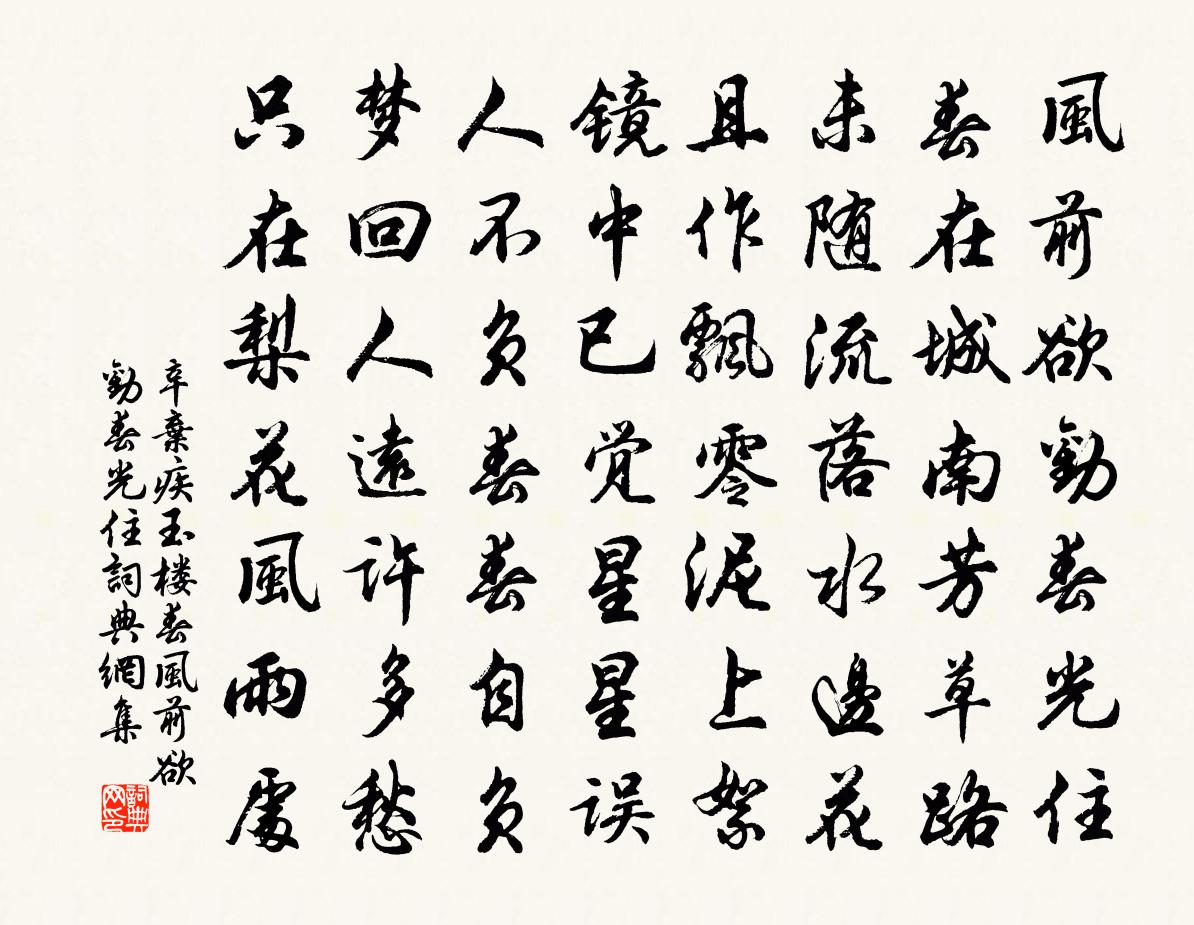 風前欲勸春光住
春在城南芳草路
未随流落水邊花
且作飄零泥上絮
镜中已觉星星误
人不负春春自负
梦回人遠许多愁
只在梨花風雨處
辛棄疾玉楼春風前欲
勸春光住詞典網集
詞典网印